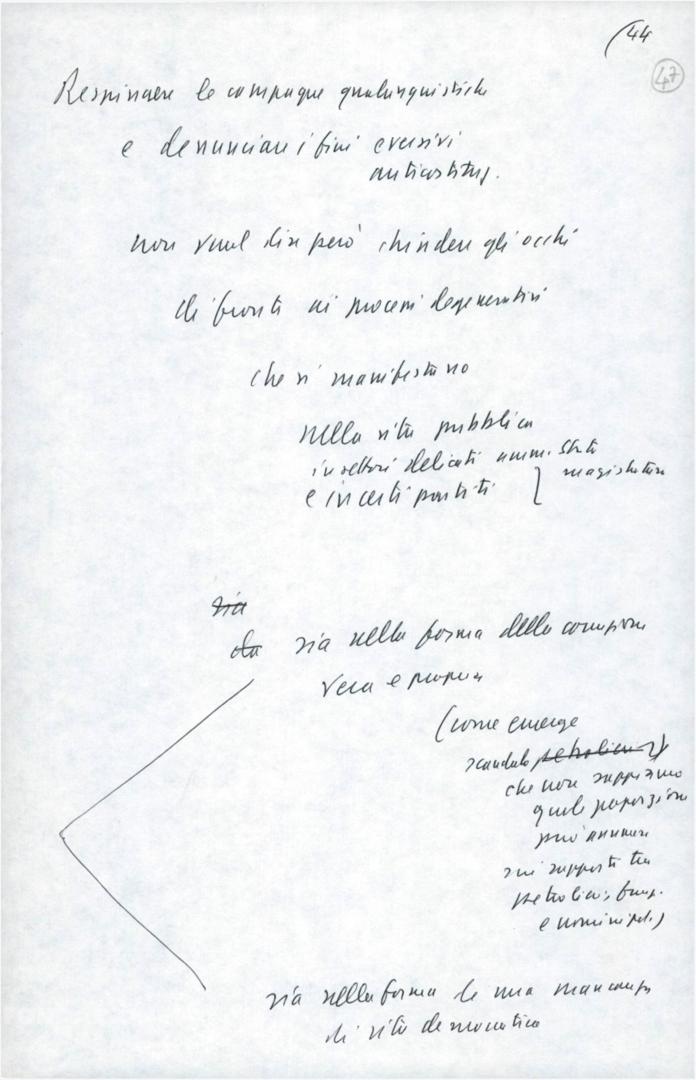 44
47
Respingere le campagne qualunquistiche
e denunciare i fini eversivi
anticostituz.
non vuol dire però chiudere gli occhi
di fronte ai processi degenerativi
che si manifestano
nella vita pubblica
in settori delicati amm. Stato
magistratura
e in certi partiti
sia
da sia nella forma della corruzione
vera e propria
(come emerge
scandalo petrolieri)
che non sappiamo
quale proporzione
può assumere
sui rapporti tra
petrolieri, funz.
e uomini pol.)
sia nella forma di una mancanza
di vita democratica